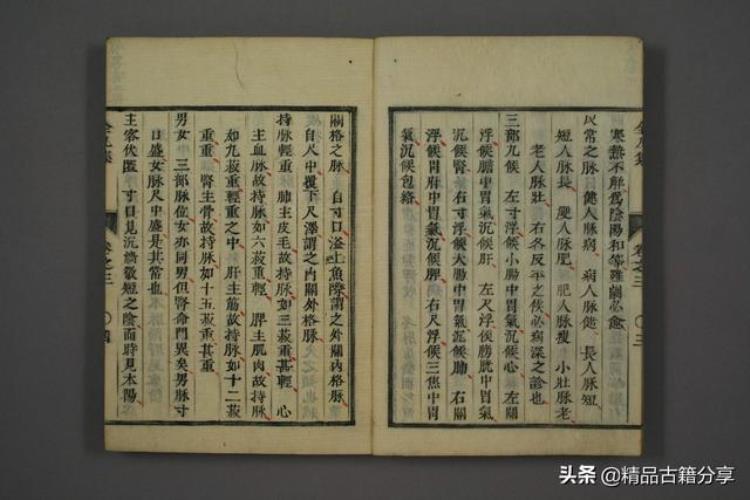 寒熱不解爲陰陽和等雖劇必愈
反常之脉 健人脉病 病人脉健 長人脉短
短人脉長 瘦人脉肥 肥人脉瘦 小壯脉老
老人脉壯 右各反乎之候必病深之診也
三部九候 左寸浮候小腸中胃氣沉候心 左關
浮候膽中胃氣沉候肝 左尺浮候膀胱中胃氣
沉候腎 右寸浮候大腸中胃氣沉候肺 右關
浮候胃府中胃氣沉候脾 右尺浮候三焦中胃
氣沉候包絡
卷之三
〇三
關格之脉 自寸口溢上魚際謂之外關內格脉
自尺中覆下尺澤謂之內關外格脉
持脉輕重 肺主皮毛故持脉如三菽重甚輕 心
主血脉故持脉如六菽重輕 脾主肌肉故持脉
如九菽重輕重之中 肝主筋故持脉如十二菽
重重 腎主骨故持脉如十五菽重甚重
男女 三部脉位女亦同男但腎命門異矣男脉寸
口盛女脉尺中盛是其常也
主客伏匿 寸口見沉濇微短之陰而時見本陽
卷之三
〇四
头条 @精品古籍分享